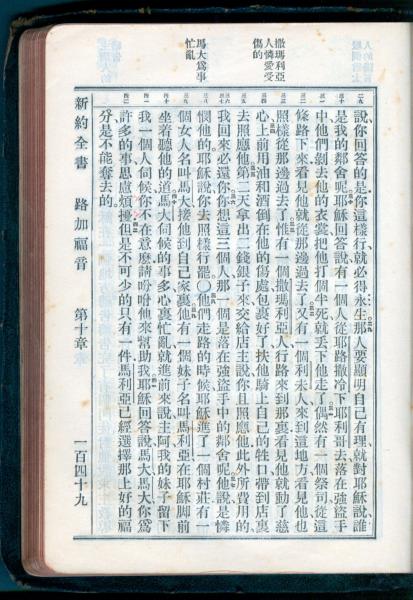 撒瑪利亞
人憐愛受
傷的
馬大爲事
忙亂
說你回答的是你這樣行就必得永生那人要顯明自己有理就對耶穌說誰
是我的鄰舍呢耶穌回答說有一個人從耶路撒冷下耶利哥去落在強盜手
中他們剝去他的衣裳把他打個半死就丟下他走了偶然有一個祭司從這
條路下來看見他就從那邊過去了又有一個利未人來到這地方看見他也
照樣從那邊過去了惟有一個撒瑪利亞人行路來到那裏看見他就動了慈
心上前用油和酒倒在他的傷處包裹好了扶他騎上自己的牲口帶到店裏
去照應他第二天拿出二錢銀子來交給店主說你且照應他此外所費用的
我回來必還你你想這三個人那一個是落在強盜手中的鄰舍呢他說是憐
憫他的耶穌說你去照樣行罷〇他們走路的時候耶穌進了一個村莊有一
個女人名叫馬大接他到自己家裏他有一個妹子名叫馬利亞在耶穌脚前
坐着聽他的道馬大伺候的事多心裏忙亂就進前來說主阿我的妹子留下
我一個人伺候你不在意麼請吩咐他來幫助我耶穌回答說馬大馬大你爲
許多的事思慮煩擾但是不可少的只有一件馬利亞已經選擇那上好的福
分是不能奪去的
新約全書 路加福音 第十章 一百四十九